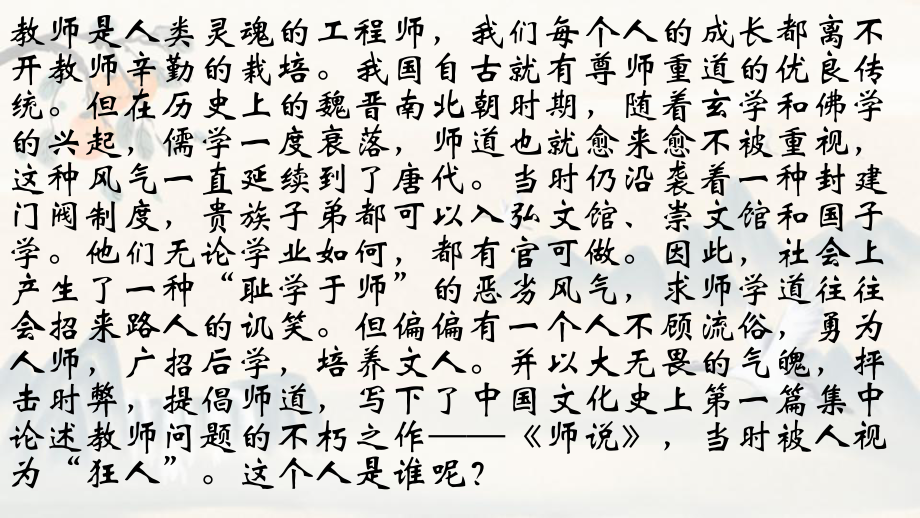 教师是人类灵魂的工程师，我们每个人的成长都离不
开教师辛勤的栽培。我国自古就有尊师重道的优良传
统。但在历史上的魏晋南北朝时期，随着玄学和佛学
的兴起，儒学一度衰落，师道也就愈来愈不被重视，
这种风气一直延续到了唐代。当时仍沿袭着一种封建
门阀制度，贵族子弟都可以入弘文馆、崇文馆和国子
学。他们无论学业如何，都有官可做。因此，社会上
产生了一种“耻学于师”的恶劣风气，求师学道往往
会招来路人的讥笑。但偏偏有一个人不顾流俗，勇为
人师，广招后学，培养文人。并以大无畏的气魄，抨
击时弊，提倡师道，写下了中国文化史上第一篇集中
论述教师问题的不朽之作——《师说》，当时被人视
为“狂人”。这个人是谁呢？